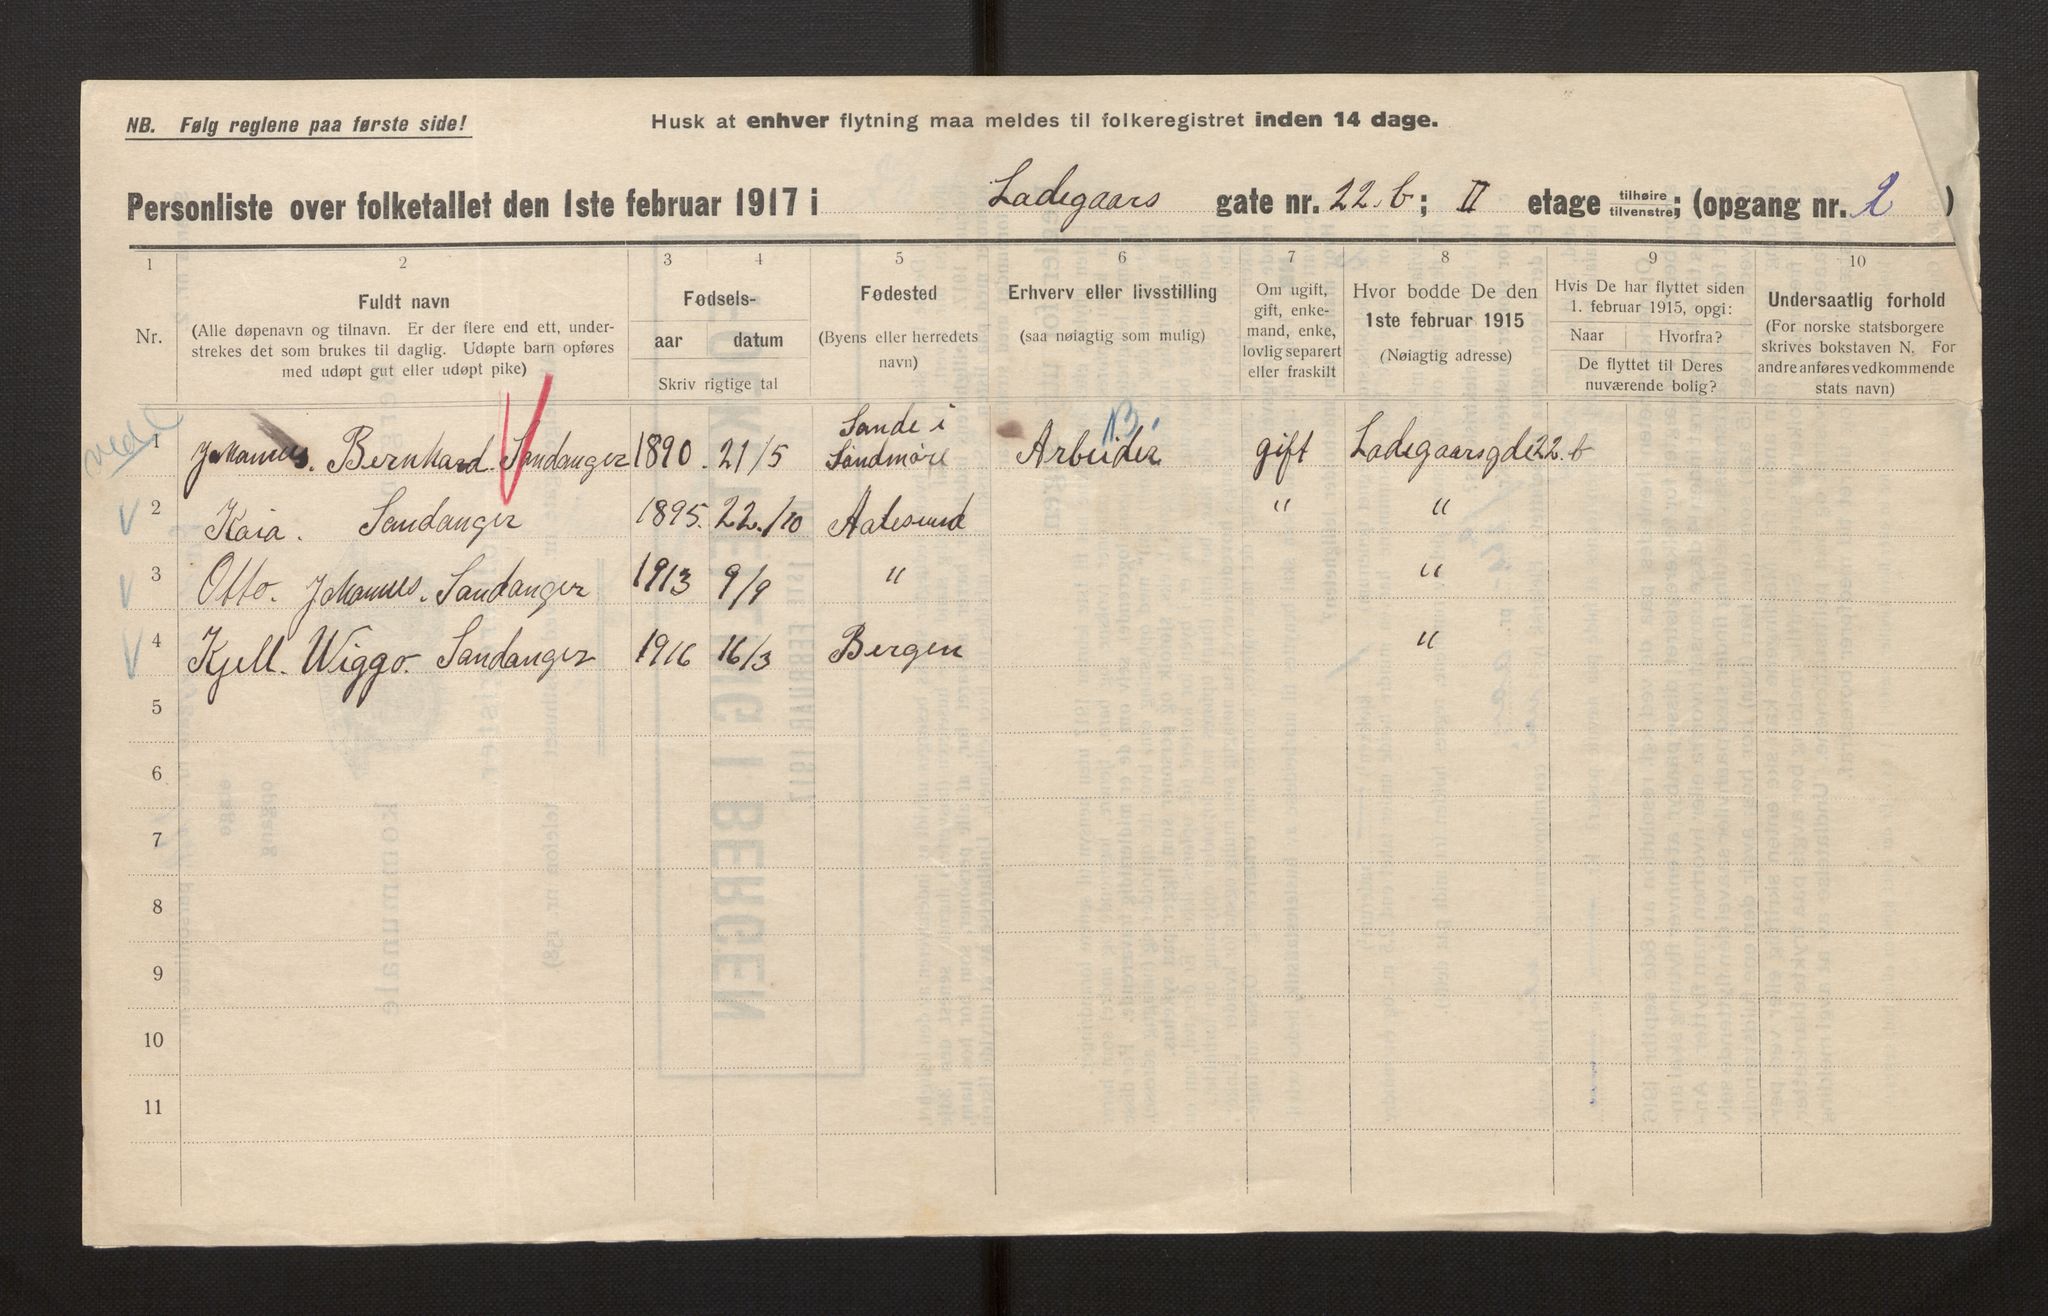 NB. Følg reglene paa første side!
Husk at enhver flytning maa meldes til folkeregistret inden 14 dage.
Personliste over folketallet den 1ste februar 1917 i Ladegaars gate nr. 22.b; II etage tilhøire tilvenstre; (opgang nr. 2 )
1 2 3 4 5 6 7 8 9 10
Nr.
Fuldt navn
(Alle døpenavn og tilnavn. Er der flere end ett, under-
strekes det som brukes til daglig. Udøpte barn opføres
med udøpt gut eller udøpt pike)
Fødsels-
aar datum
Skriv rigtige tal
Fødested
(Byens eller herredets
navn)
Erhverv eller livsstilling
(saa nøiagtig som mulig)
Om ugift,
gift, enke-
mand, enke,
lovlig separert
eller fraskilt
Hvor bodde De den
1ste februar 1915
(Nøiagtig adresse)
Hvis De har flyttet siden
1. februar 1915, opgi:
Naar Hvorfra?
De flyttet til Deres
nuværende bolig?
Undersaatlig forhold
(For norske statsborgere
skrives bokstaven N. For
andre anføres vedkommende
stats navn)
1 Johannes. Bernhard Sandanger 1890. 21/5 Sande i Søndmøre Arbeider gift Ladegaarsgde 22.b
2 Kaia. Sandanger 1895. 22./10 Aalesund " "
3 Otto. Johannes. Sandanger 1913 9/9 " "
4 Kjell. Wiggo. Sandanger 1916 16/3 Bergen "
5
6
7
8
9
10
11